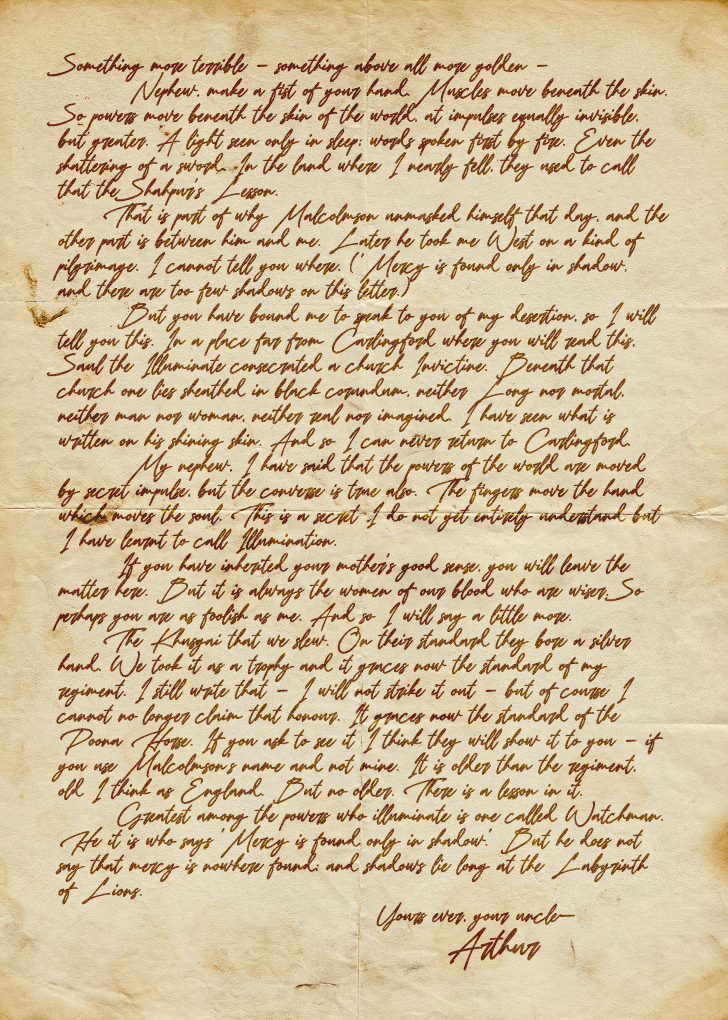 Something more terrible – something above all more golden –
Nephew, make a fist of your hand. Muscles move beneath the skin.
So powers move beneath the skin of the world, at impulses equally invisible,
but greater. A light seen only in sleep; words spoken first by fire. Even the
shattering of a sword. In the land where I nearly fell, they used to call
that the Shahpur's Lesson.
That is part of why Malcolmson unmasked himself that day, and the
other part is between him and me. Later he took me West on a kind of
pilgrimage. I cannot tell you where. ('Mercy is found only in shadow,
and there are too few shadows on this letter.)
But you have bound me to speak to you of my desertion, so I will
tell you this. In a place far from Carlingford where you will read this,
Saul the Illuminate consecrated a church Invictine. Beneath that
church one lies sheathed in black corundum, neither Long nor mortal,
neither man nor woman, neither real nor imagined. I have seen what is
written on his shining skin. And so I can never return to Carlingford.
My nephew, I have said that the powers of the world are moved
by secret impulse, but the converse is true also. The fingers move the hand
which moves the soul. This is a secret I do not yet entirely understand but
I have learnt to call Illumination.
If you have inherited your mother's good sense, you will leave the
matter here. But it is always the women of our blood who are wiser. So
perhaps you are as foolish as me. And so I will say a little more.
The Khusgai that we slew. On their standard they bore a silver
hand. We took it as a trophy and it graces now the standard of my
regiment. I still write that – I will not strike it out – but of course I
cannot no longer claim that honour. It graces now the standard of the
Poona Horse. If you ask to see it I think they will show it to you – if
you use Malcolmson's name and not mine. It is older than the regiment,
old I think as England. But no older. There is a lesson in it.
Greatest among the powers who illuminate is one called Watchman.
He it is who says 'Mercy is found only in shadow'. But he does not
say that mercy is nowhere found; and shadows lie long at the Labyrinth
of Lions.
Yours ever, your uncle
Arthur